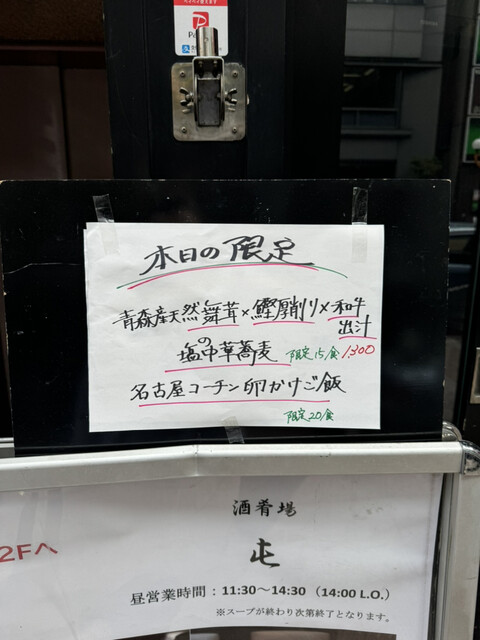 Pa
本日の限定
青森産天然舞茸×鰹厚削り×和牛
出汁
塩の中華蕎麦 限定15食 1300
名古屋コーチン卵かけご飯
限定20食
酒肴場
2Fへ
屯
昼営業時間：11:30～14:30（14:00 L.O.）
※スープが終わり次第終了となります。